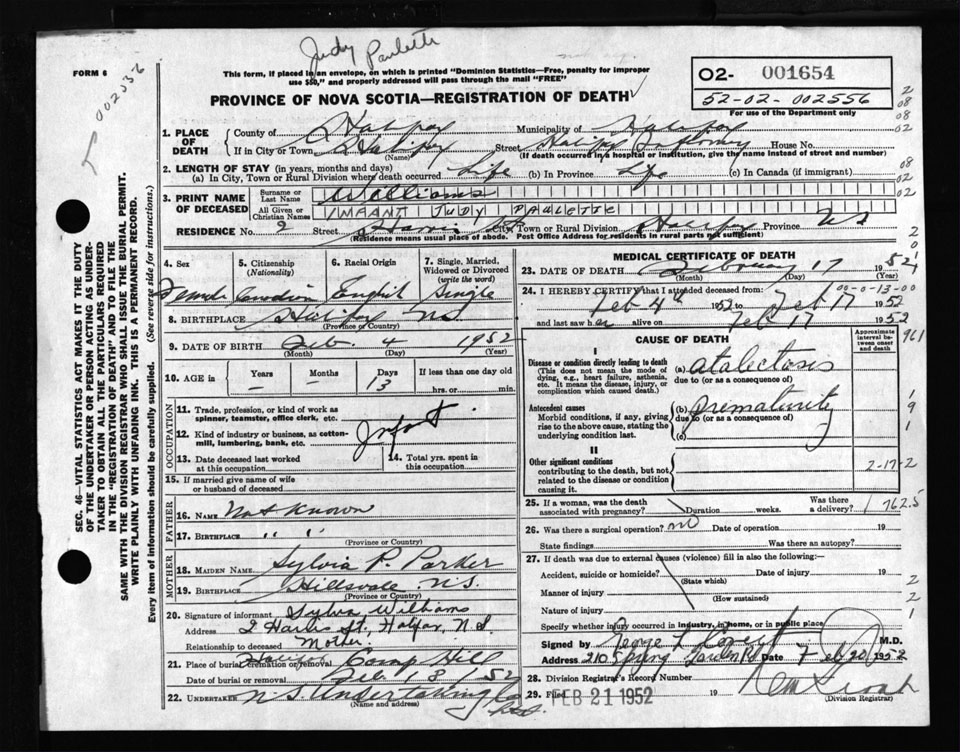 Judy Paulette
FORM 6
002336
This form, if placed in an envelope, on which is printed "Dominion Statistics—Free, penalty for improper
use $50," and properly addressed will pass through the mail "FREE"
PROVINCE OF NOVA SCOTIA—REGISTRATION OF DEATH
02- 001654
52-02-002556
For use of the Department only
SEC. 46—VITAL STATISTICS ACT MAKES IT THE DUTY
OF THE UNDERTAKER OR PERSON ACTING AS UNDER-
TAKER TO OBTAIN ALL THE PARTICULARS REQUIRED
IN THE "REGISTRATION OF DEATH" AND TO FILE THE
SAME WITH THE DIVISION REGISTRAR WHO SHALL ISSUE THE BURIAL PERMIT.
WRITE PLAINLY WITH UNFADING INK. THIS IS A PERMANENT RECORD.
Every item of information should be carefully supplied. (See reverse side for instructions.)
1. PLACE OF DEATH
County of Halifax Municipality of Halifax
If in City or Town Halifax Street Halifax Infirmary House No.
(Name) (If death occurred in a hospital or institution, give the name instead of street and number)
2. LENGTH OF STAY (in years, months and days)
(a) In City, Town or Rural Division where death occurred Life (b) In Province Life (c) In Canada (if immigrant)
3. PRINT NAME OF DECEASED
Surname or Last Name Williams
All Given or Christian Names INFANT JUDY PAULETTE
RESIDENCE No. 2 Street Harris St City, Town or Rural Division Halifax Province NS
(Residence means usual place of abode. Post Office Address for residents in rural parts not sufficient)
4. Sex 5. Citizenship (Nationality) 6. Racial Origin 7. Single, Married, Widowed or Divorced (write the word)
Female Canadian English Single
8. BIRTHPLACE Halifax NS.
(Province or Country)
9. DATE OF BIRTH Feb. 4 1952
(Month) (Day) (Year)
10. AGE in Years Months Days If less than one day old
— — 13 hrs. or min.
OCCUPATION
11. Trade, profession, or kind of work as spinner, teamster, office clerk, etc.
12. Kind of industry or business, as cotton-mill, lumbering, bank, etc. Infant.
13. Date deceased last worked at this occupation
14. Total yrs. spent in this occupation
15. If married give name of wife or husband of deceased
FATHER
16. NAME Not Known
17. BIRTHPLACE " "
(Province or Country)
MOTHER
18. MAIDEN NAME Sylvia P. Parker
19. BIRTHPLACE Hillsvale N.S.
(Province or Country)
20. Signature of informant Sylvia Williams
Address 2 Harris St., Halifax, N.S.
Relationship to deceased Mother.
21. Place of burial cremation or removal Camp Hill
Date of burial or removal Feb. 18 1952
22. UNDERTAKER N.S. Undertaking Co Ltd.
(Name and address)
MEDICAL CERTIFICATE OF DEATH
23. DATE OF DEATH February 17 1952
(Month) (Day)
24. I HEREBY CERTIFY that I attended deceased from
00-0-13-00
Feb 4th 1952 to Feb 17 1952
and last saw her alive on Feb 17 1952
CAUSE OF DEATH
Approximate interval between onset and death
I
Disease or condition directly leading to death
(This does not mean the mode of dying, e.g., heart failure, asthenia, etc. It means the disease, injury, or complication which caused death.)
(a) atalectosis
due to (or as a consequence of)
Antecedent causes
Morbid conditions, if any, giving rise to the above cause, stating the underlying condition last.
(b) prematurity
due to (or as a consequence of)
(c)
II
Other significant conditions
contributing to the death, but not related to the disease or condition causing it.
2-17-2
25. If a woman, was the death associated with pregnancy? Duration weeks. Was there a delivery?
7625
26. Was there a surgical operation? no Date of operation 19
State findings Was there an autopsy?
27. If death was due to external causes (violence) fill in also the following:-
Accident, suicide or homicide? Date of injury 19
(State which)
Manner of injury
(How sustained)
Nature of injury
Specify whether injury occurred in industry, in home, or in public place
Signed by George L Covert M.D.
Address 210 Spring Garden Rd Date Feb 20 1952
28. Division Registrar's Record Number
29. Filed FEB 21 1952 19
(Division Registrar)